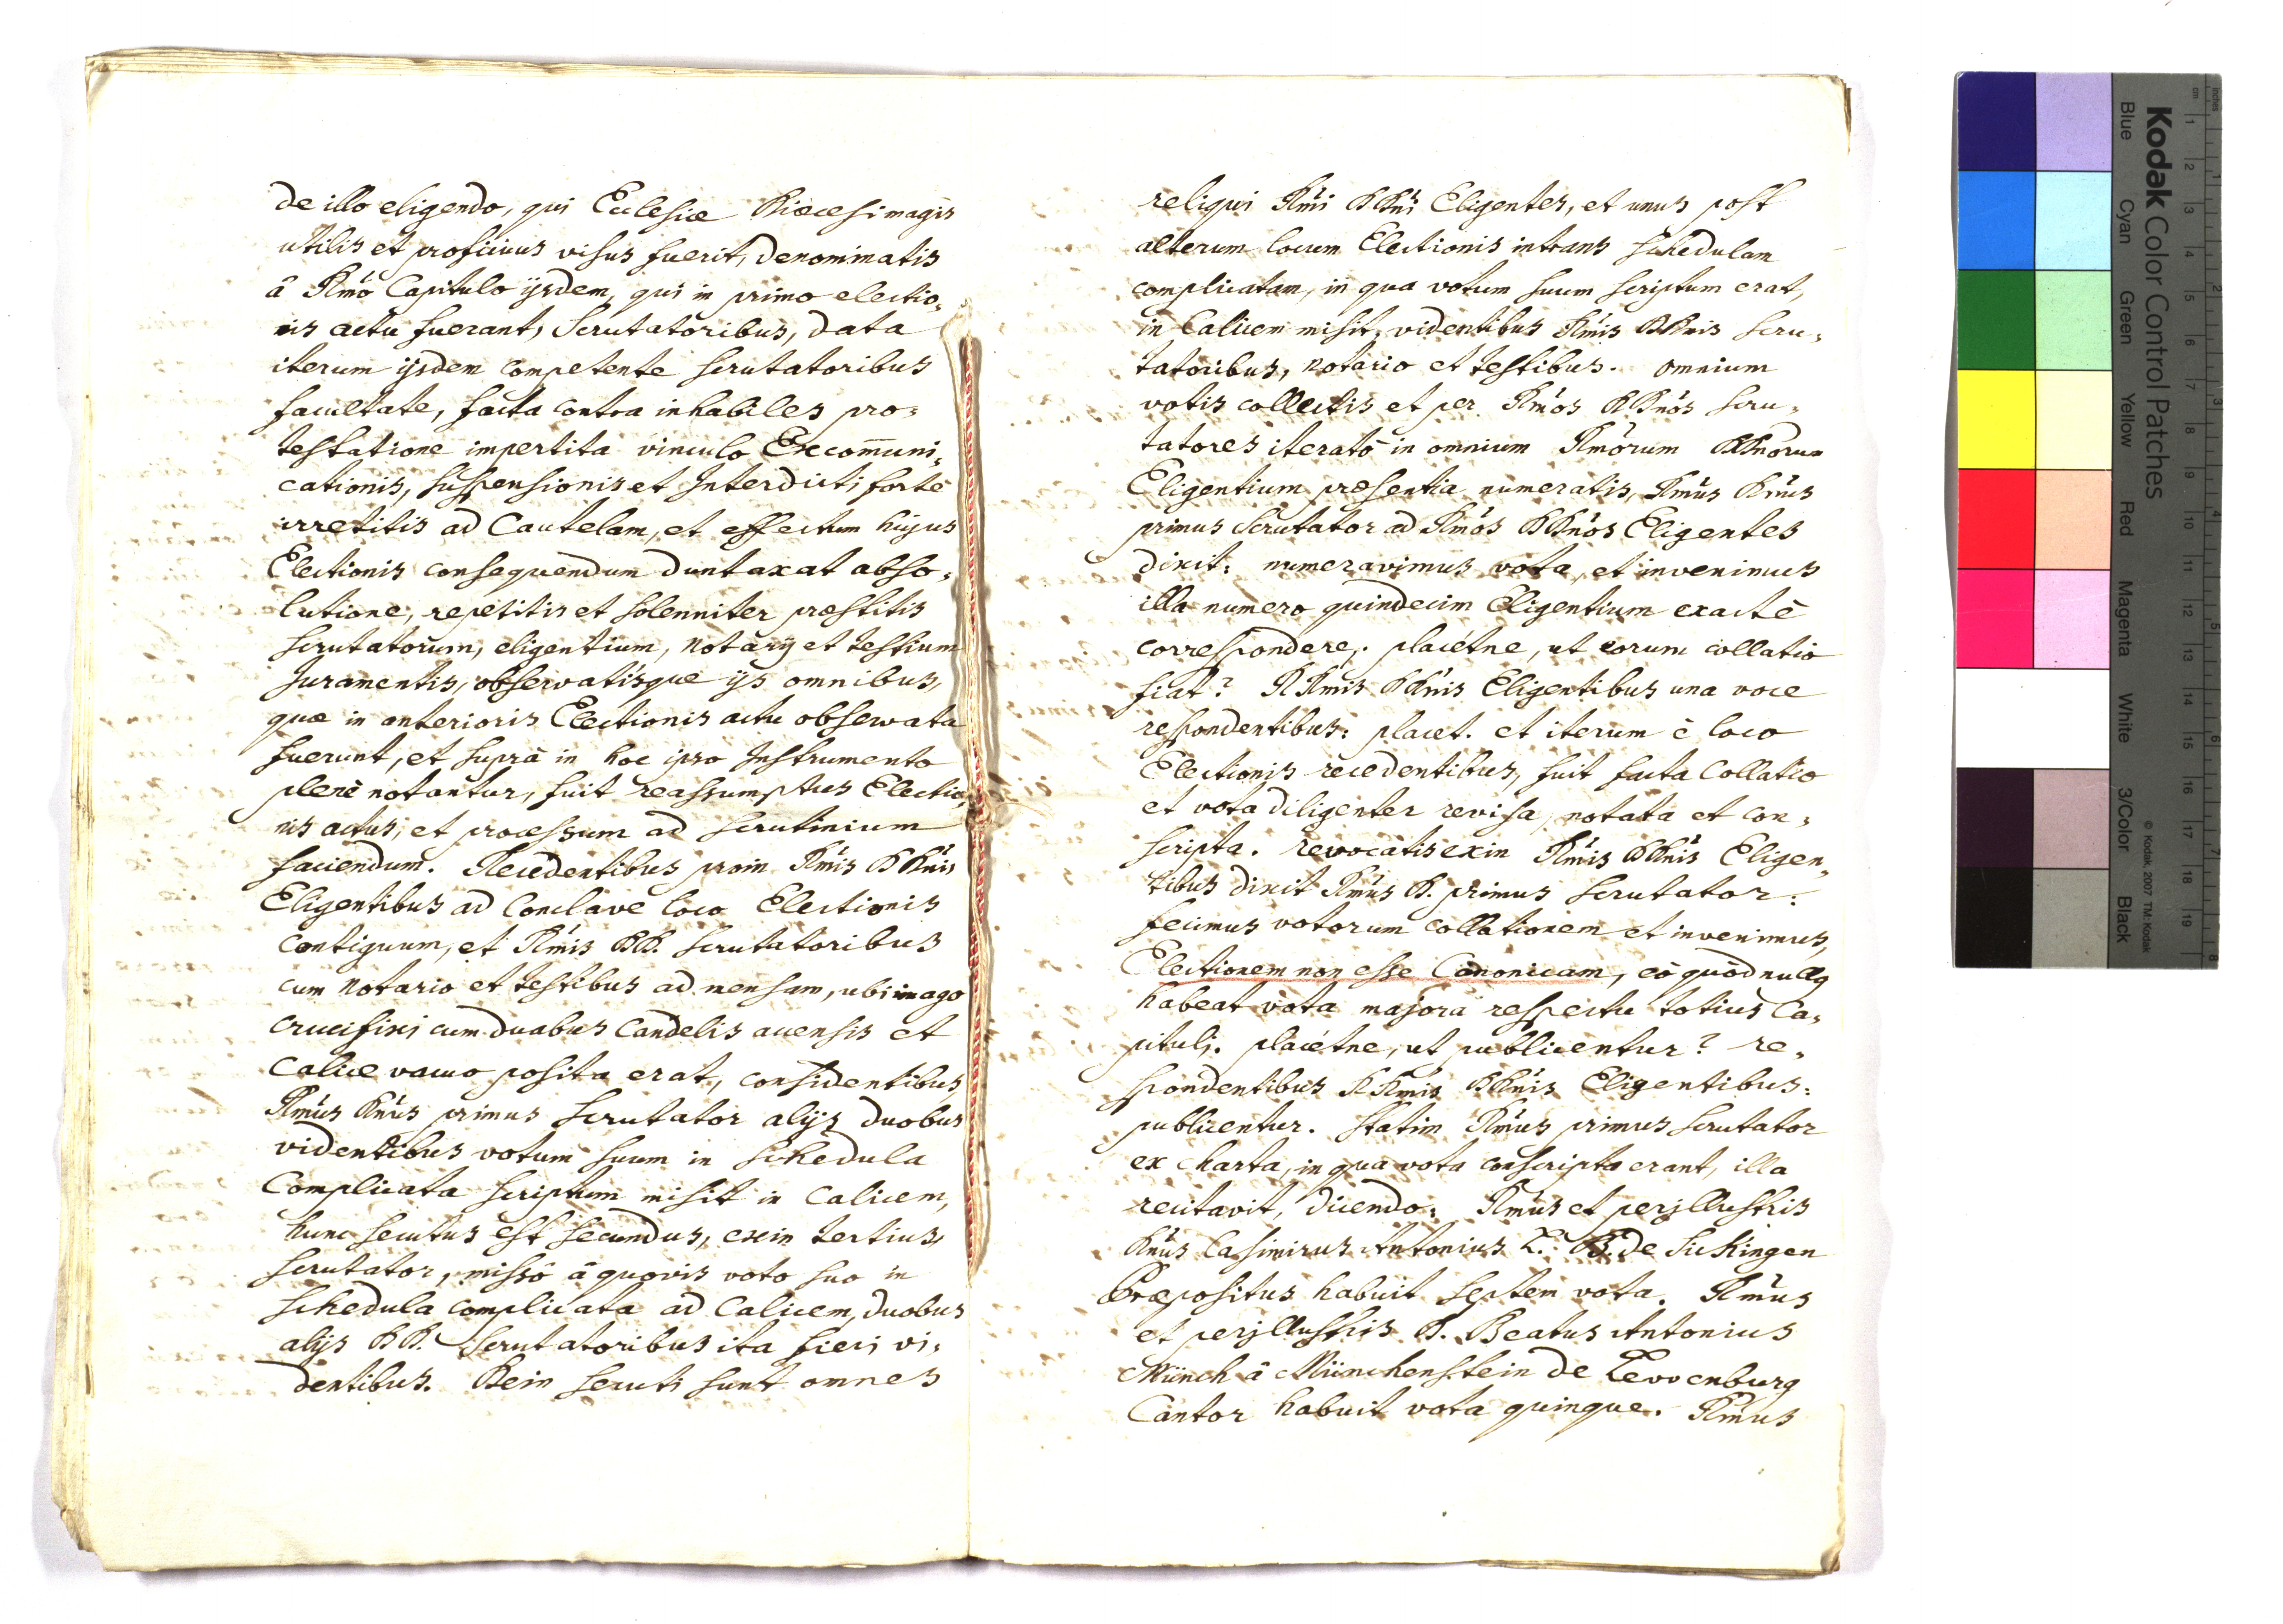 de illo eligendo, qui Ecclesiæ Diœcesi magis
utilis et proficuus visus fuerit, denominatis
â Rm̃o Capitulo ijsdem, qui in primo electio„
nis actu fuerant, Scrutatoribus, data
iterum ijsdem competente scrutatoribus
facultate, facta contra inhabiles pro„
testatione impertita vinculo Excom̃uni„
cationis, suspensionis et Interdicti fortè
irretitis ad Cautelam, et effectum hujus
Electionis consequendum duntaxat abso„
lutione, repetitis et solenniter præstitis
scrutatorum, eligentium, notarij et testium
Juramentis, observatisque ijs omnibus,
quæ in anterioris Electionis actu observata
fuerunt, et suprà in hoc ipso Instrumento
plenè notantur, fuit reassumptus Electio„
nis actus, et processum ad scrutinium
faciendum. Recedentibus proin Rm̃is DDñis
Eligentibus ad Conclave loco Electionis
contiguum, et Rm̃is DD. scrutatoribus
cum notario et testibus ad mensam, ubi imago
crucifixi cum duabus candelis accensis et
calice vacuo posita erat, considentibus,
Rm̃us Dñus primus scrutator alijs duobus
videntibus votum suum in schedula
Complicata scriptum misit in Calicem,
hunc secutus est secundus, exin tertius,
scrutator, missô â quovis voto suo in
schedula complicata ad Calicem, duobus
alijs DD. Scrutatoribus ita fieri vi„
dentibus. Dein secuti sunt omnes
reliqui Rm̃i DDñi Eligentes, et unus post
alterum locum Electionis intrans schedulam
complicatam, in qua votum suum scriptum erat,
in Calicem misit, videntibus Rm̃is DDnis scru„
tatoribus, notario et testibus. omnium
votis collectis et per Rm̃os DDños scru„
tatores iteratò in omnium Rm̃orum DDnorum
Eligentium præsentia numeratis, Rm̃us Dñus
primus Scrutator ad Rm̃os DDños Eligentes
dixit: numeravimus vota, et invenimus
illa numero quindecim Eligentium exactè
correspondere, placétne, ut eorum collatio
fiat? RRmis DDnis Eligentibus una voce
respondentibus: placet. et iterum è loco
Electionis recedentibus, fuit facta Collatio
et vota diligenter revisa, notata et con„
scripta. revocatis exin Rm̃is DDñis Eligen„
tibus dixit Rm̃us D. primus scrutator:
fecimus votorum collationem et invenimus,
Electionem non esse Canonicam, eò quòd nullq
habeat vota majora respectu totius Ca„
pituli. placétne, ut publicentur? re„
spondentibus RRmis DDñis Eligentibus:
publicentur. statim Rm̃us primus scrutator
ex charta, in qua vota conscripta erant, illa
recitavit, dicendo: Rm̃us et perjllustris
Dñus Casimirus Antonius L. B. de Sickingen
Præpositus habuit septem vota. Rm̃us
et perjllustris D. Beatus Antonius
Münch â Münchenstein de Lewenburg
Cantor habuit vota quinque. Rm̃us
Kodak Color Control Patches
© Kodak, 2007 TM: Kodak
Blue Cyan Green Yellow Red Magenta White 3/Color Black
inches 1 2 3 4 5 6 7 8
cm 1 2 3 4 5 6 7 8 9 10 11 12 13 14 15 16 17 18 19